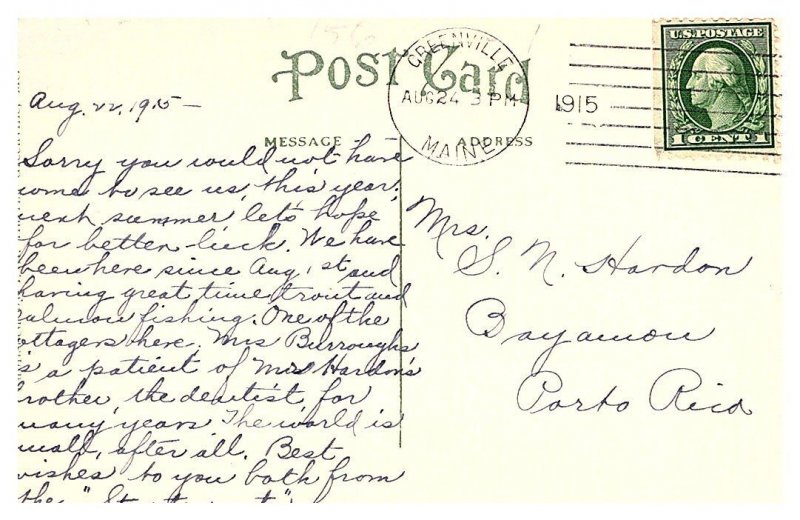 Post Card
GREENVILLE
AUG 24 3 PM
MAINE
1915
U.S. POSTAGE
1 CENT 1
Aug. 22, 1915 -
MESSAGE
ADDRESS
Sorry you would not have
come to see us this year.
next summer, let's hope
for better luck. We have
been here since Aug, 1st and
having great time trout and
salmon fishing. One of the
cottagers here. Mrs Burroughs
is a patient of Mrs Hardon's
brother the dentist for
many years The world is
small, after all. Best
wishes to you both from
the "
Mrs.
S. N. Hardon
Bayamon
Porto Rico